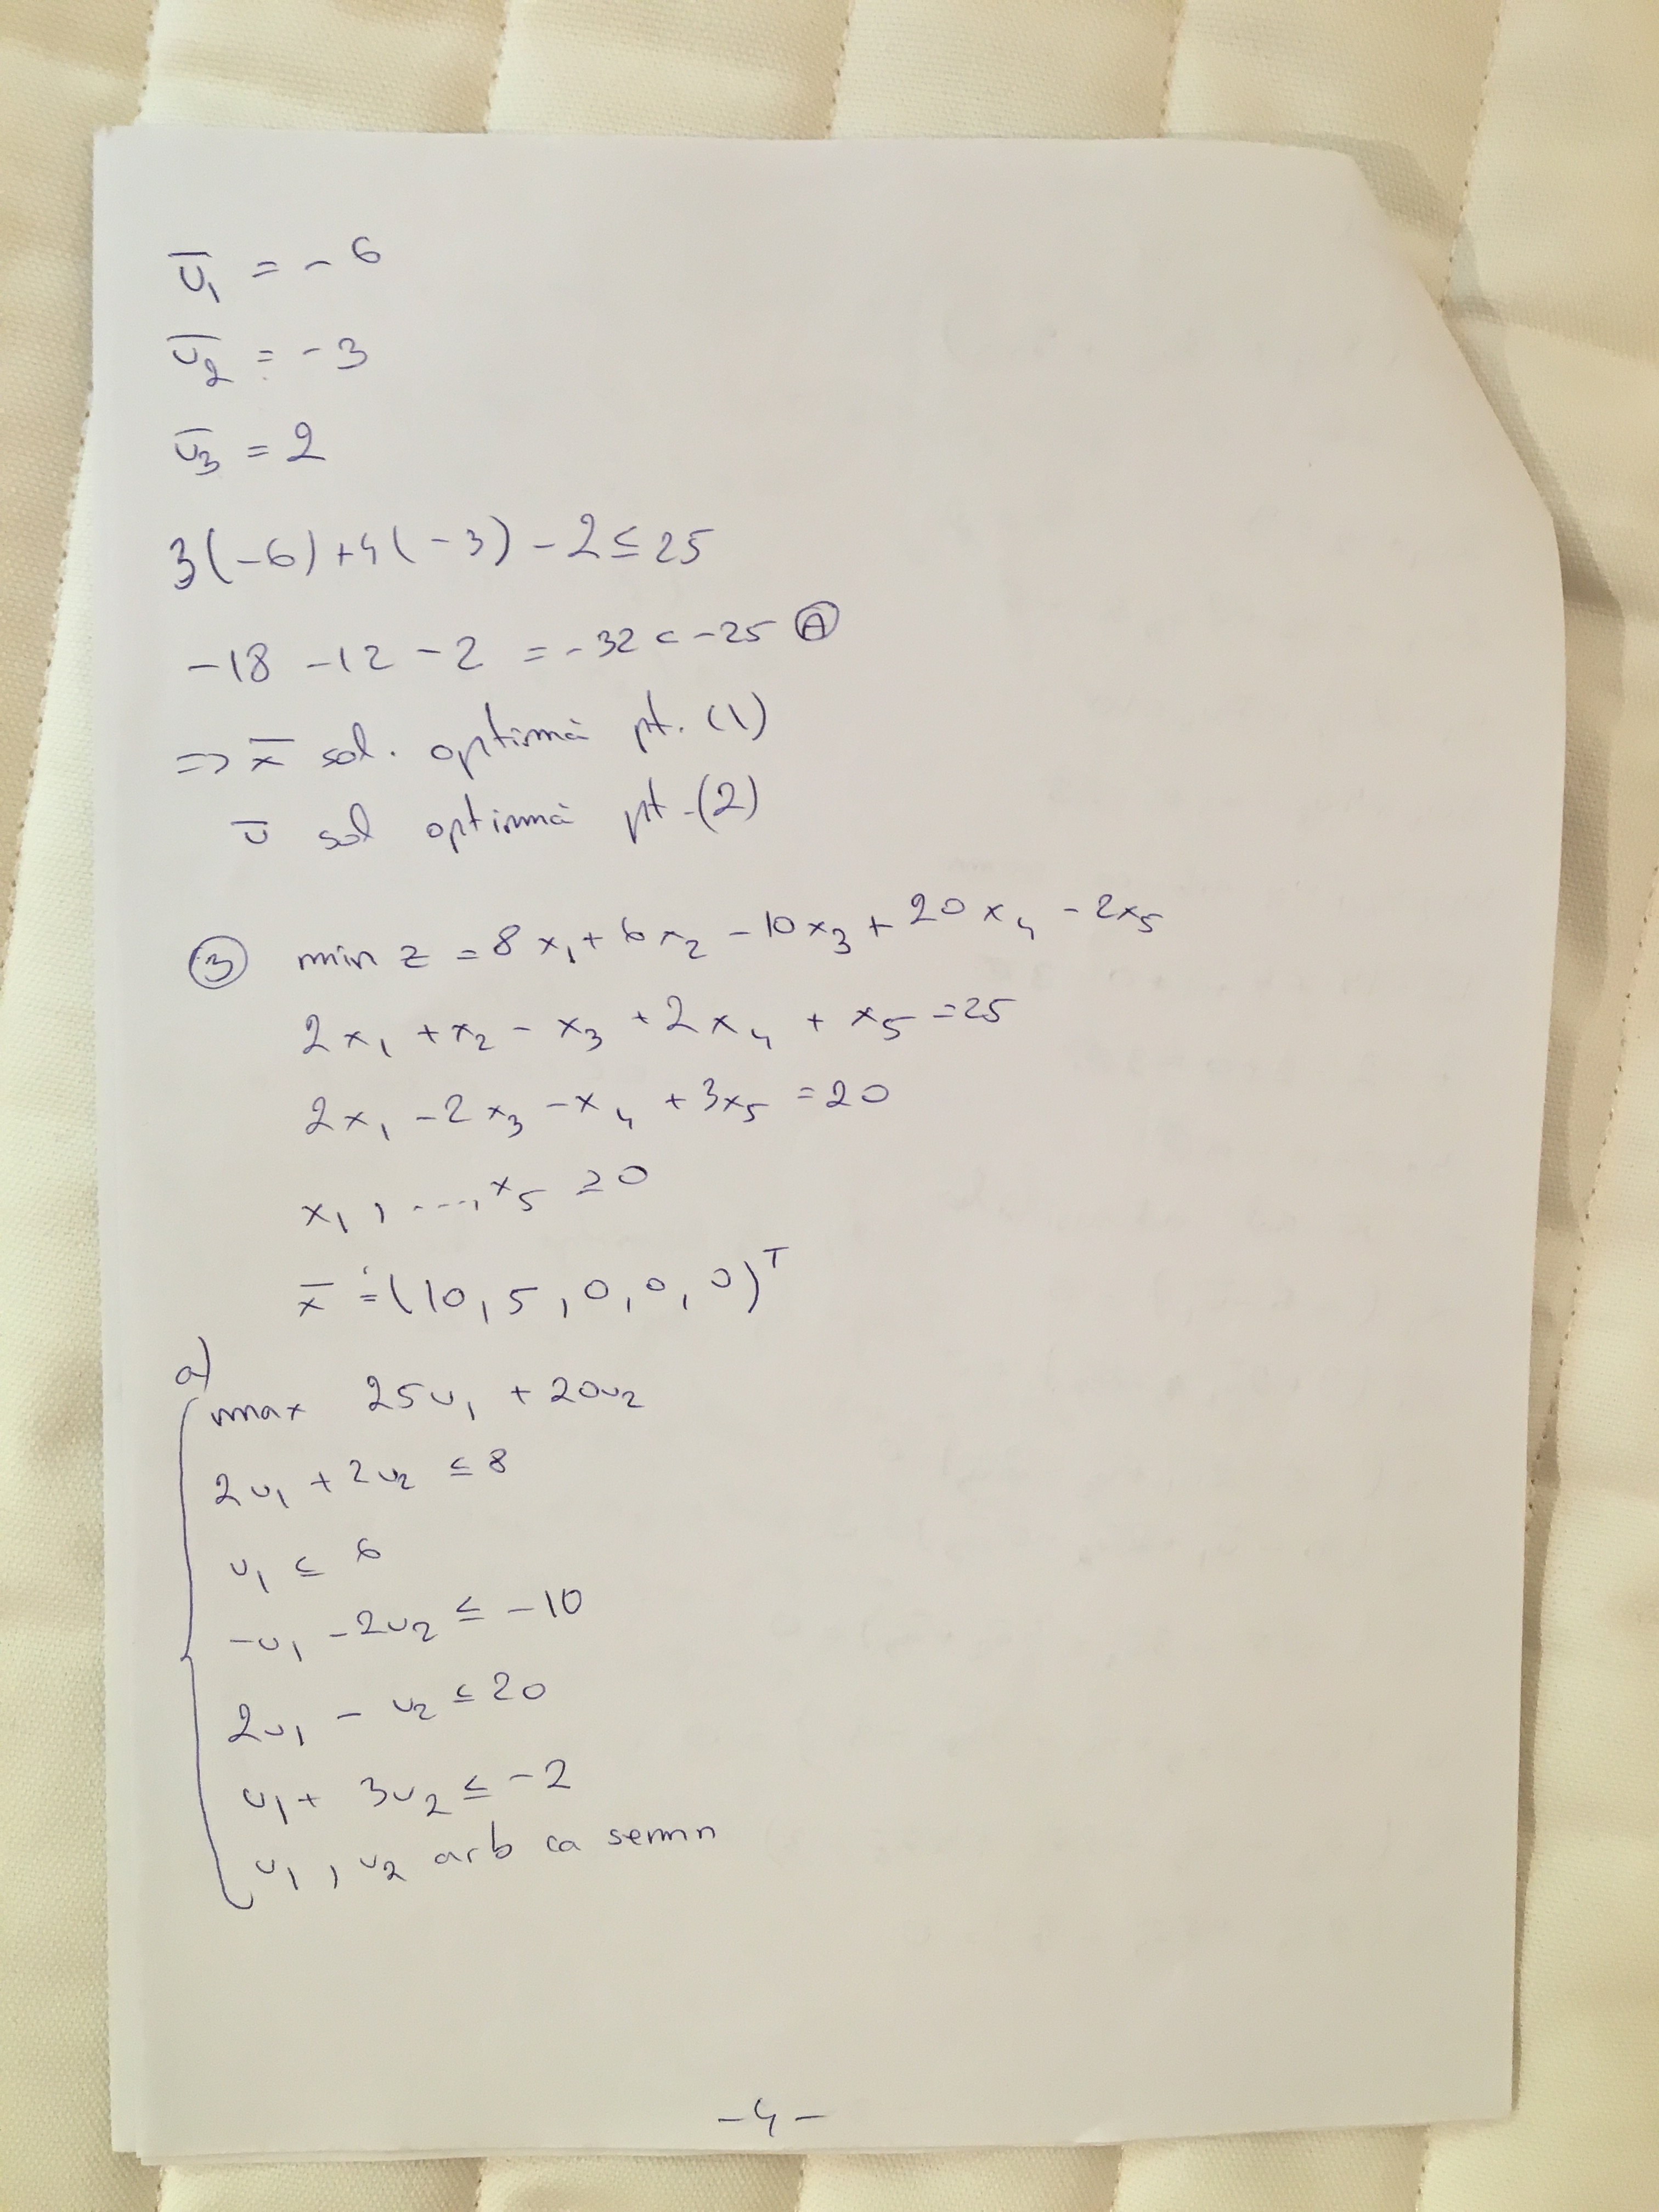 ū₁ = -6
ū₂ = -3
ū₃ = 2
3(-6)+4(-3)-2≤25
-18 -12 -2 = -32 < -25 Ⓐ
=> x̄ sol. optimă pt. (1)
ū sol optimă pt.(2)
③ min z = 8x₁ + 6x₂ - 10x₃ + 20x₄ - 2x₅
2x₁ + x₂ - x₃ + 2x₄ + x₅ = 25
2x₁ - 2x₃ - x₄ + 3x₅ = 20
x₁, ..., x₅ ≥0
x̄ = (10, 5, 0, 0, 0)ᵀ
a)
max 25u₁ + 20u₂
2u₁ + 2u₂ ≤ 8
u₁ ≤ 6
-u₁ - 2u₂ ≤ -10
2u₁ - u₂ ≤ 20
u₁ + 3u₂ ≤ -2
u₁, u₂ arb ca semn
-4-